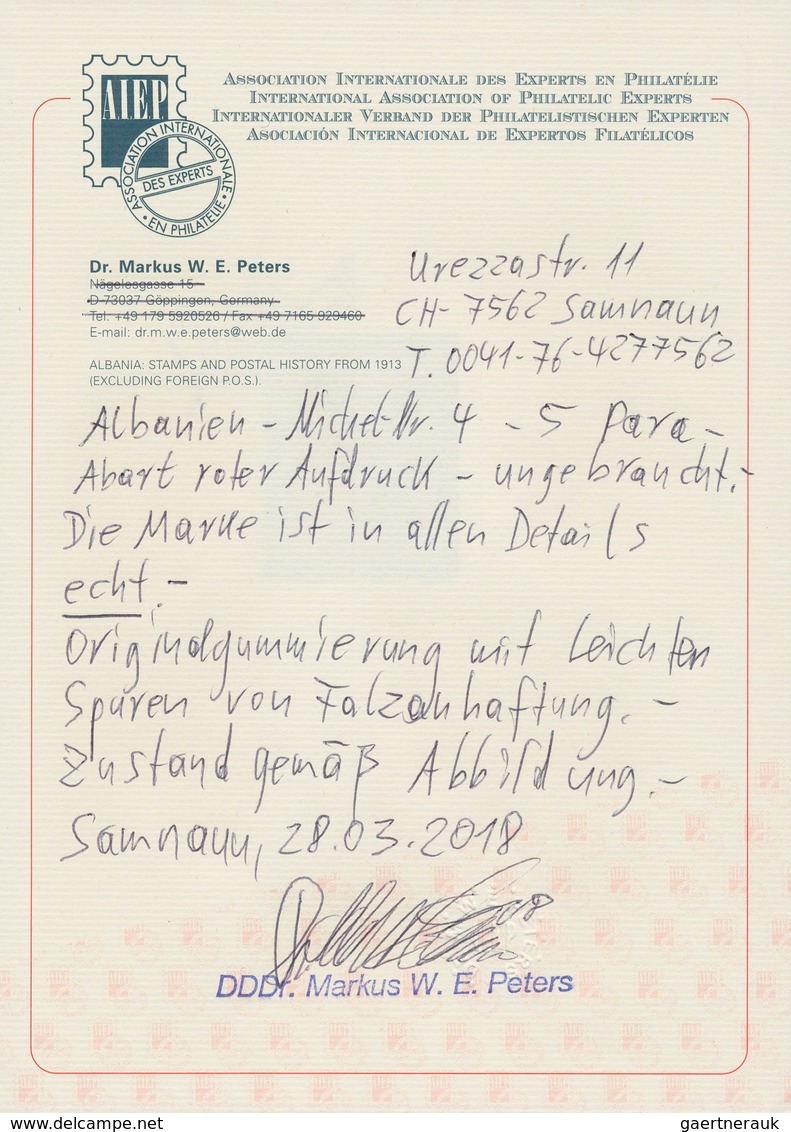 AIEP
ASSOCIATION INTERNATIONALE
DES EXPERTS
EN PHILATELIE
Association Internationale des Experts en Philatélie
International Association of Philatelic Experts
Internationaler Verband der Philatelistischen Experten
Asociación Internacional de Expertos Filatélicos
Dr. Markus W. E. Peters
Nägelesgasse 15
D-73037 Göppingen, Germany
Tel. +49 179 5920526 / Fax +49 7165 929460
E-mail: dr.m.w.e.peters@web.de
Urezzastr. 11
CH-7562 Samnaun
T. 0041-76-4277562
ALBANIA: STAMPS AND POSTAL HISTORY FROM 1913
(EXCLUDING FOREIGN P.O.S.).
Albanien - Michel-Nr. 4 - 5 Para -
Abart roter Aufdruck - ungebraucht.-
Die Marke ist in allen Details
echt.-
Originalgummierung mit leichten
Spuren von Falzanhaftung. -
Zustand gemäß Abbildung.-
Samnaun, 28.03.2018
DDDr. Markus W. E. Peters
www.delcampe.net
gaertnerauk